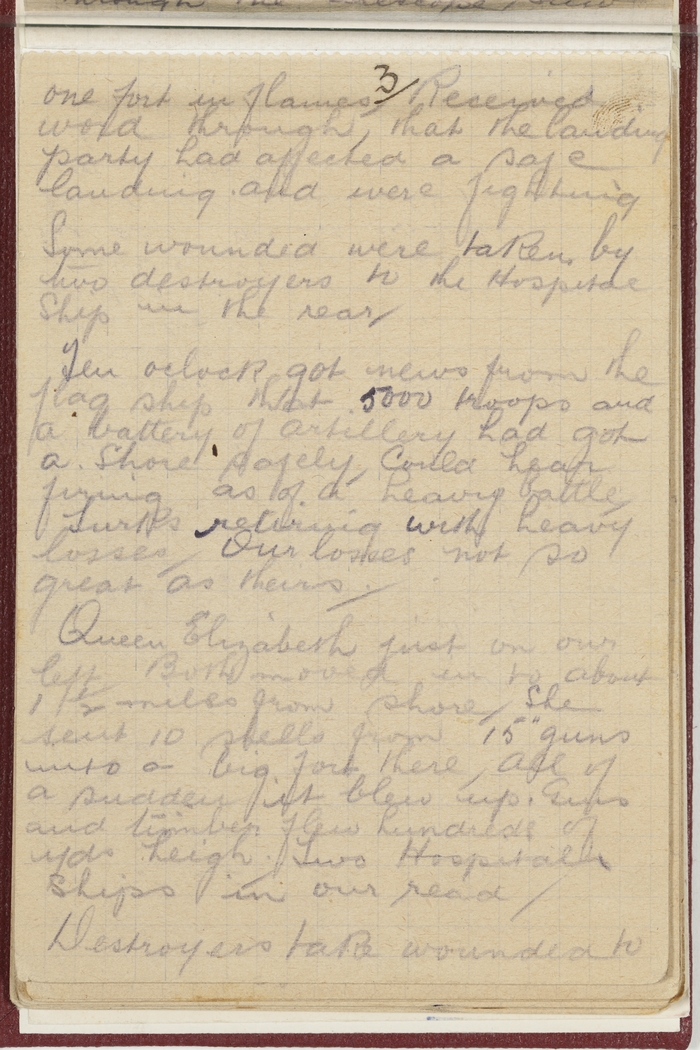 through the telescope, saw
3/
one fort in flames, Received
word through, that the landing
party had affected a safe
landing and were fighting
Some wounded were taken by
two destroyers to the Hospital
Ship in the rear/
Ten oclock got news from the
flag ship that 5000 troops and
a battery of artillery had got
a. Shore safely, Could hear
firing as of a heavy battle,
Turks returing with heavy
losses/ Our losses not so
great as theirs/
Queen Elizabeth just on our
left. Both moved in to about
1 1/2 miles from shore, She
sent 10 shells from 15" guns
into a big fort there, All of
a sudden it blew up. Guns
and timber flew hundreds of
yds heigh. Two Hospital
Ships in our read/
Destroyers take wounded to